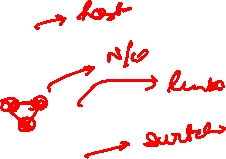 host
N/w
links
switches